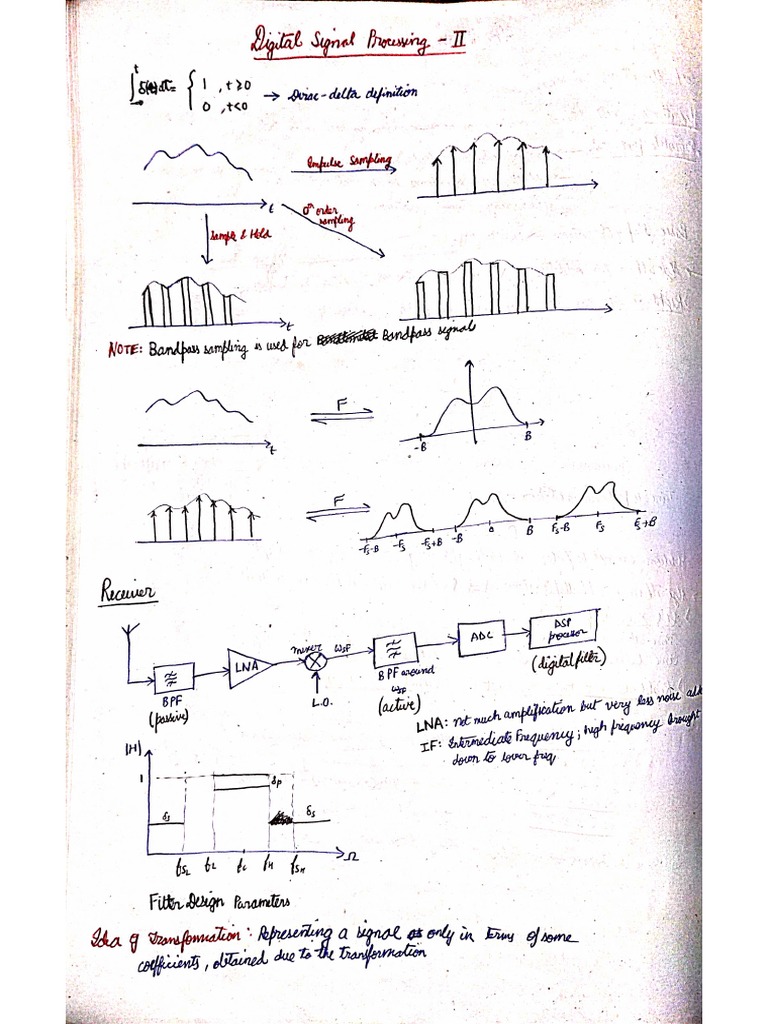 Digital Signal Processing - II
∫ δ(t)dt = { 1 , t≥0
t
-∞
0 , t<0
→ Dirac-delta definition
Impulse Sampling
0th order
sampling
t
Sample & Hold
t
NOTE: Bandpass sampling is used for Bandpass signals
F
t
-B
B
F
-Fs-B
-Fs
-Fs+B
-B
0
B
Fs-B
Fs
Fs+B
Receiver
mixer
ωIF
LNA
ADC
DSP
processor
(digital filter)
BPF
(passive)
L.O.
BPF around
ωIF
(active)
LNA: not much amplification but very less noise
IF: Intermediate Frequency; high frequency brought
down to lower freq
|H|
1
δp
δs
δs
Ω
fSL
fL
fc
fH
fSH
Filter Design Parameters
Idea of Transformation: Representing a signal only in terms of some
coefficients, obtained due to the transformation